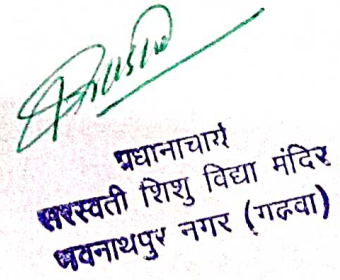 प्रधानाचार्य
सरस्वती शिशु विद्या मंदिर
भवनाथपुर नगर (गढवा)